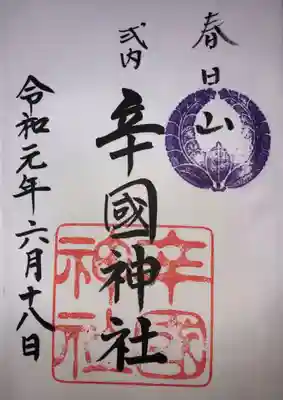 春日山
式内
辛國神社
令和元年六月十八日
辛國神社